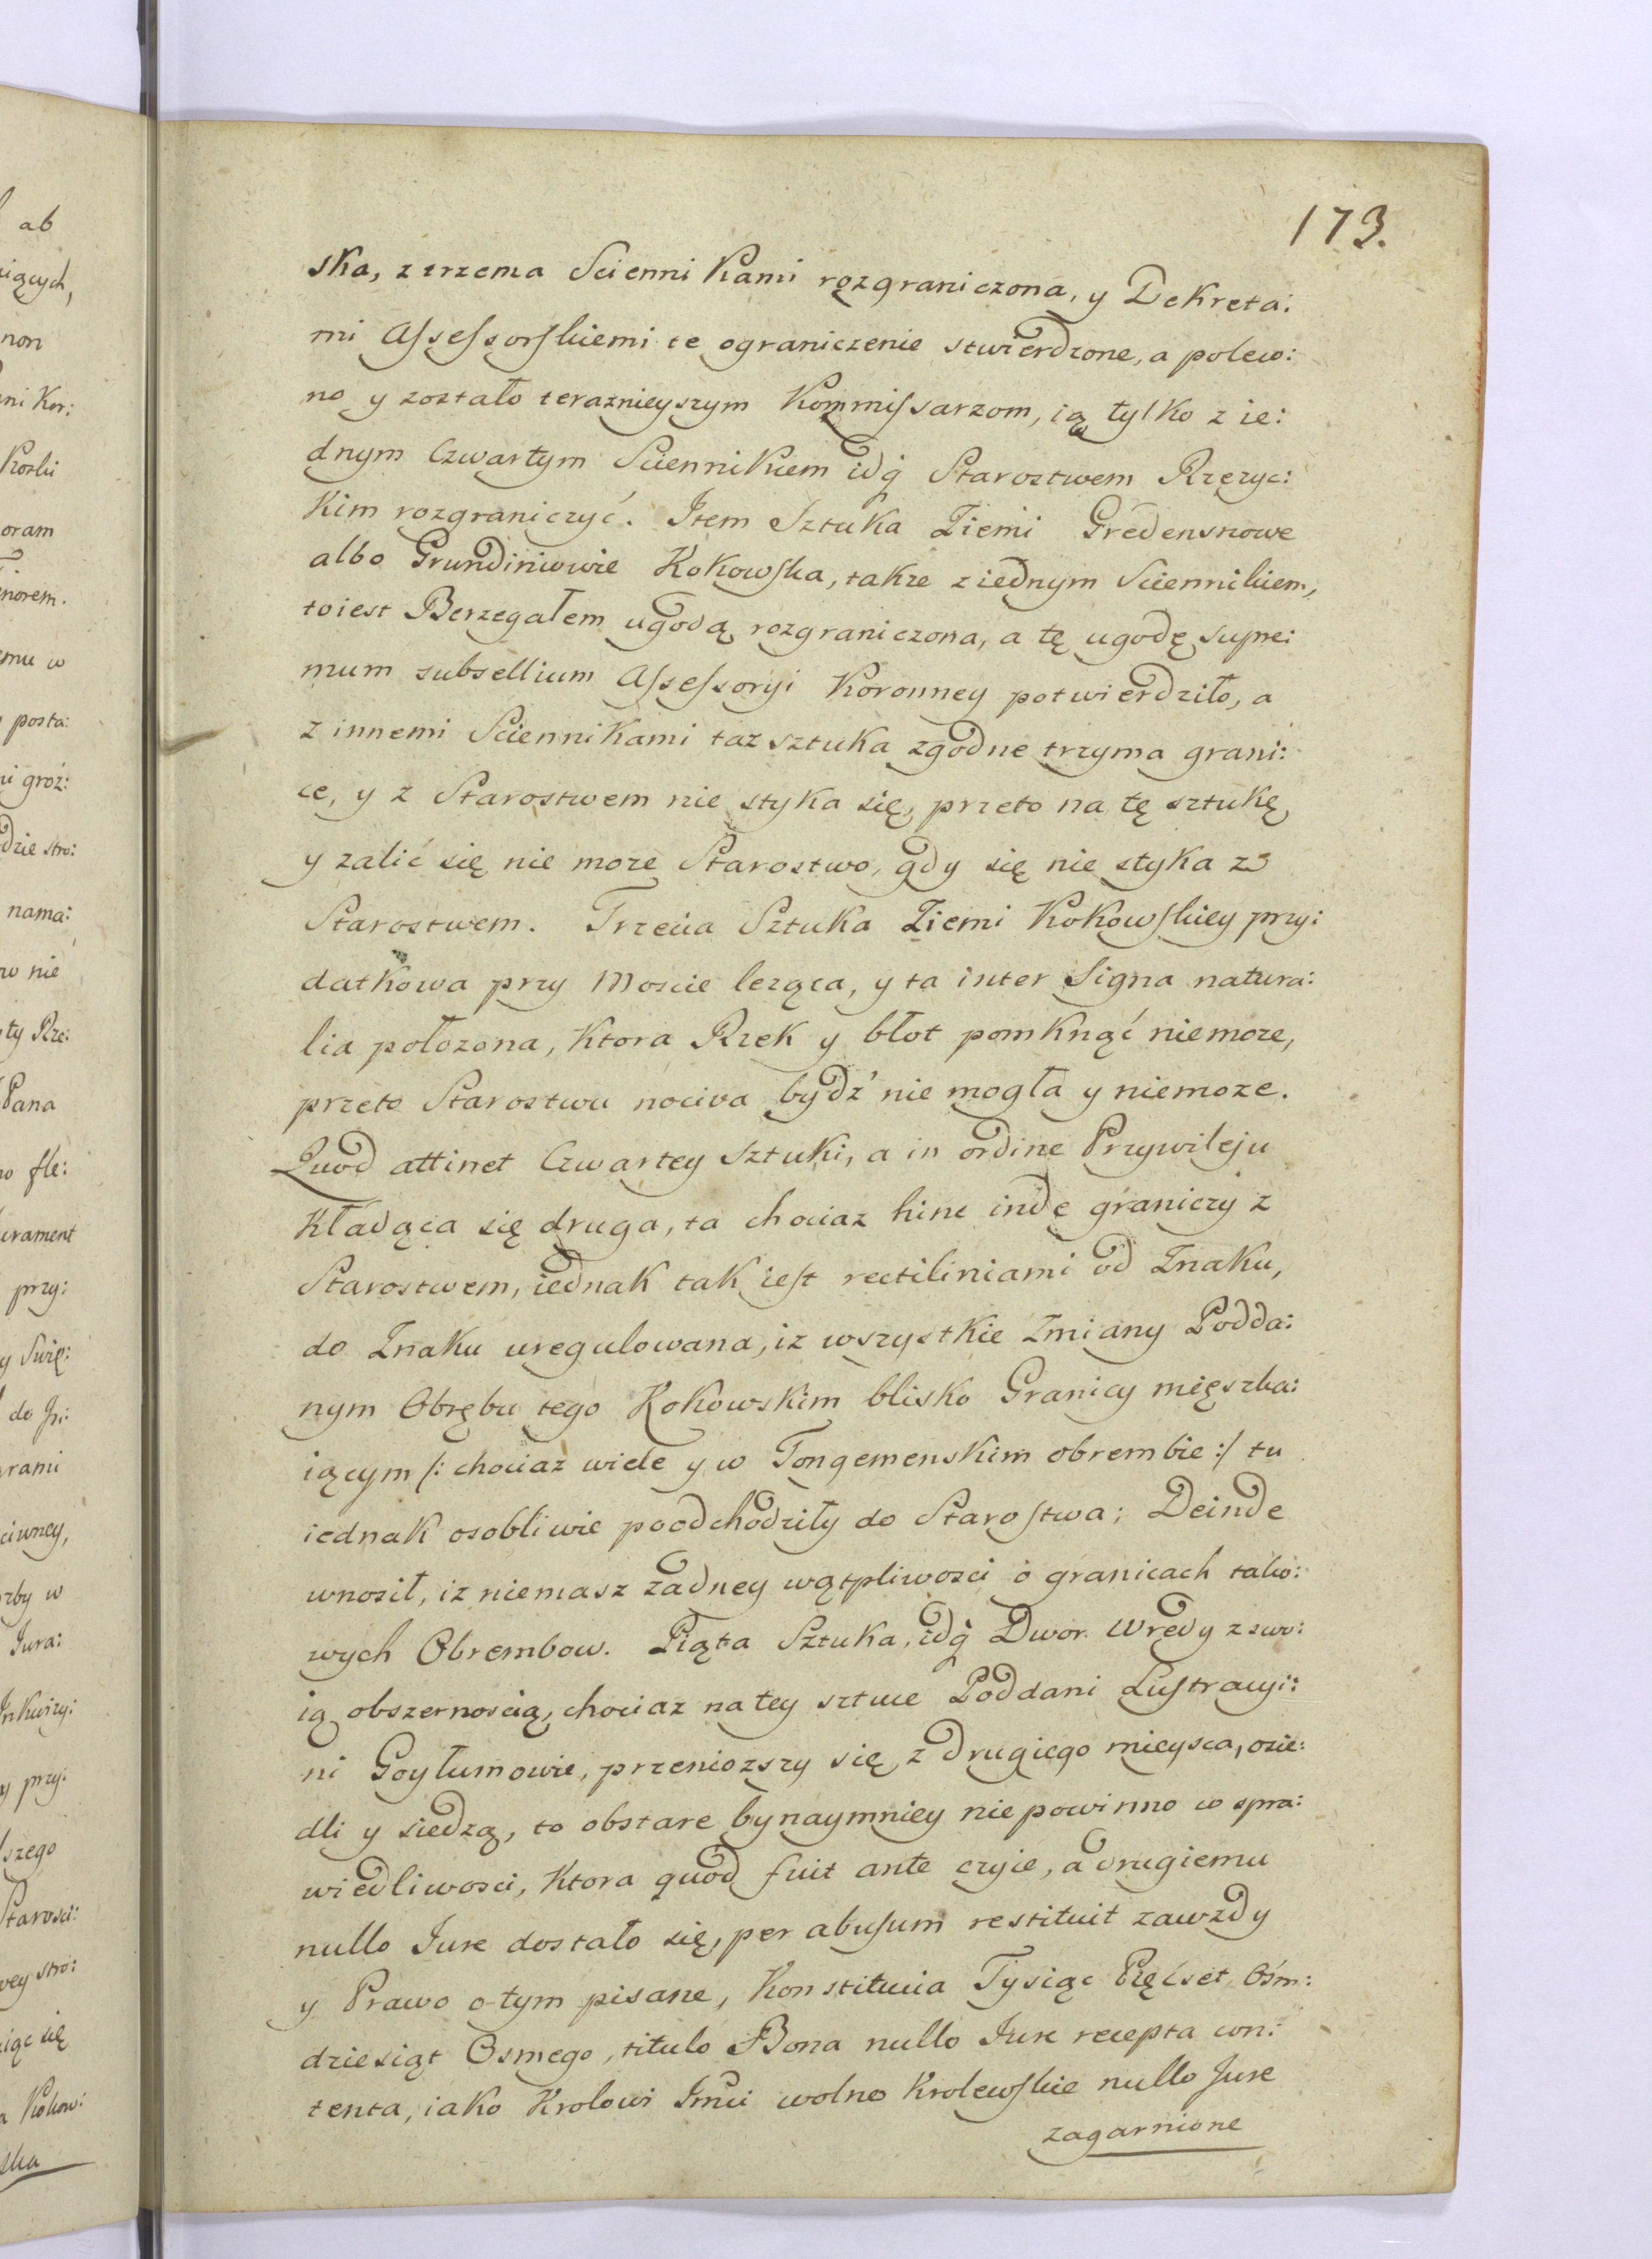 173.
ska, z trzema Sciennikami rozgraniczona, y Dekreta:
mi Assessorskiemi te ograniczenie stwierdzone, a polew:
no y zostało teraznieyszym Kommissarzom, ią tylko z ie:
dnym Czwartym Sciennikiem idq̃ Starostwem Rzezyc:
kim rozgraniczyć. Item Sztuka Ziemi Gredensnowe
albo Grundiniowie Kokowska, takze z iednym Sciennikiem,
toiest Berzegałem ugodą rozgraniczona, a tę ugodę supre:
mum subsellium Assessoryi Koronney potwierdziło, a
z innemi Sciennikami taz sztuka zgodne trzyma grani:
ce, y z Starostwem nie styka się, przeto na tę sztukę
y zalić się nie moze Starostwo, gdy się nie styka z
Starostwem. Trzecia Sztuka Ziemi Kokowskiey przy:
datkowa przy Moscie leząca, y ta inter Signa natura:
lia połozona, Ktora Rzek y błot pomknąć niemoze,
przeto Starostwu nociva bydź nie mogła y niemoze.
Quod attinet Czwartey Sztuki, a in ordine Przywileju
Kładąca się druga, ta chociaz hinc inde graniczy z
Starostwem, iednak tak iest rectiliniami od Znaku,
do Znaku uregulowana, iz wszystkie Zmiany Podda:
nym Obrębu tego Kokowskim blisko Granicy mięszka:
iącym /: chociaz wiele y w Tongemenskim obrembie :/ tu
iednak osobliwie poodchodziły do Starostwa; Deinde
wnosił, iz niemasz żadney wątpliwosci o granicach tako:
wych Obrembow. Piąta Sztuka, idq̃ Dwor Wredy z swo:
ią obszernoscią, chociaz na tey sztuce Poddani Lustracyi:
ni Goyłumowie, przeniozszy się z drugiego mieysca, ozie:
dli y siedzą, to obstare bynaymniey nie powinno w spra:
wiedliwosci, Ktora quod fuit ante czyie, a drugiemu
nullo Jure dostało się, per abusum restituit zawżdy
y Prawo o tym pisane, Konstitucia Tysiąc Pięćset Ośm:
dziesiąt Osmego, titulo Bona nullo Jure recepta con:
tenta, iako Krolowi Jmci wolno Krolewskie nullo Jure
zagarnione
ab
iących,
non
ni Kor:
oram
norem.
emu w
posta:
ni groź:
dzie stro:
nama:
w nie
ty Rze:
Pana
fle:
urament
przy:
y Swię:
do In:
grami
ciwney,
zby w
Jura:
Inkwizy:
y przy:
szego
Starosci:
wey stro:
iąc się
Kokow:
ska